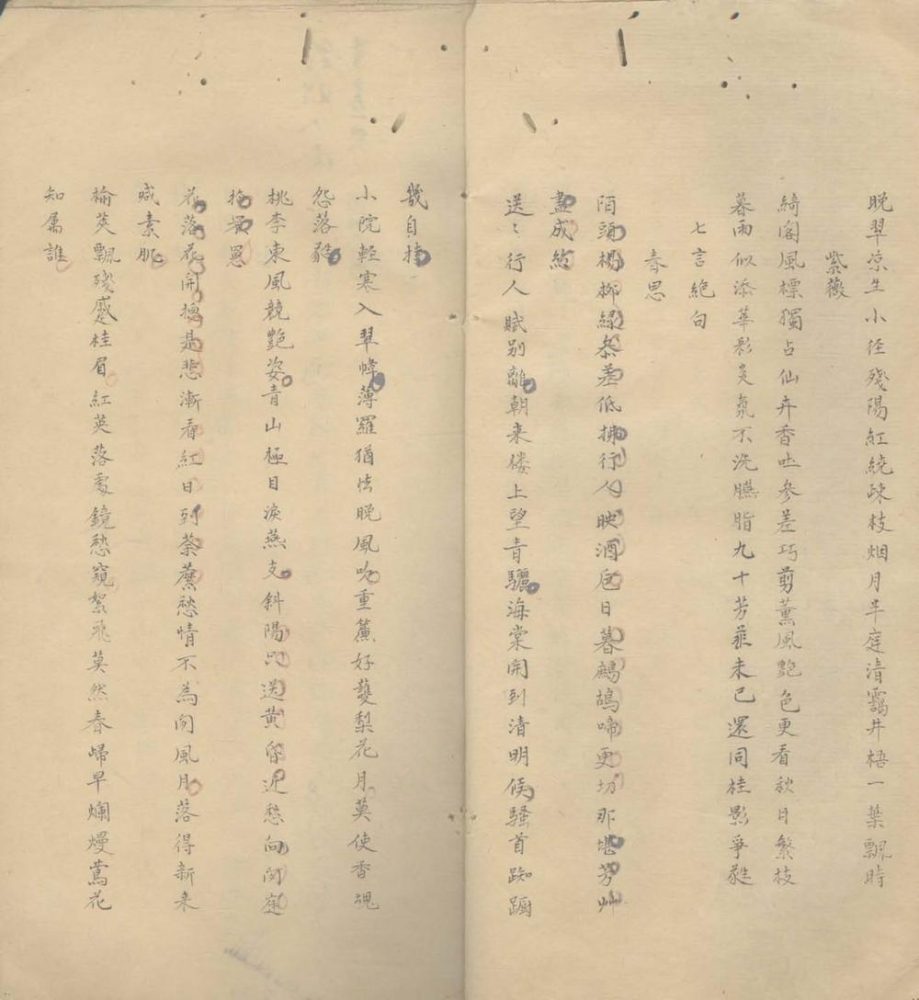 晚翠凉生小径殘陽紅繞疎枝烟月半庭清露井梧一葉飄時
紫薇
綺閣風標獨占仙卉香吐參差巧剪薰風艷色更看秋日繁枝
暮雨似添華彩炎氛不洗臙脂九十芳菲未已還同桂影爭
七言絕句
春思
陌頭楊柳綠參差低拂行人映酒卮日暮鷓鴣啼更切那堪芳艸
盡成
送〻行人賦別離朝来楼上望青驪海棠開到清明候騷首踟躕
幾自持
小院輕寒入翠幃薄羅猶怯晚風吹重簾好護梨花月莫使香魂
怨落
桃李東風競艷姿青山極目淚燕支斜陽只送黃昏近愁向
花落花開總是悲漸看紅日到荼蘼愁情不為向風月落得新来
減素肌
榆莢飄殘蹙桂眉紅英落處鏡愁窺絮飛莫然春歸早爛熳鶯花
知屬誰